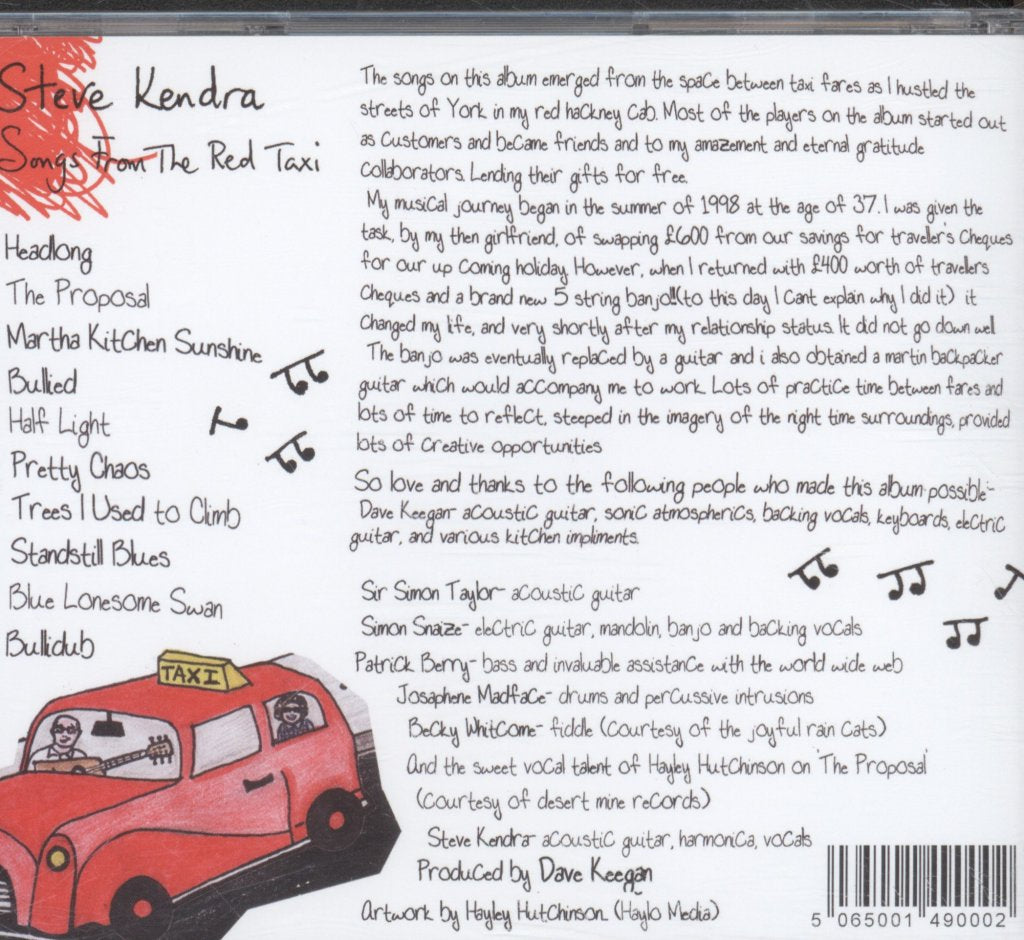 Steve Kendra
Songs From The Red Taxi
Headlong
The Proposal
Martha Kitchen Sunshine
Bullied
Half Light
Pretty Chaos
Trees I Used to Climb
Standstill Blues
Blue Lonesome Swan
Bullidub
TAXI
The songs on this album emerged from the space between taxi fares as I hustled the
streets of York in my red hackney Cab. Most of the players on the album started out
as Customers and became friends and to my amazement and eternal gratitude
collaborators. Lending their gifts for free.
My musical journey began in the summer of 1998 at the age of 37. I was given the
task, by my then girlfriend, of swapping £600 from our savings for traveller's Cheques
for our up coming holiday. However, when I returned with £400 worth of travellers
Cheques and a brand new 5 string banjo!!(to this day I Cant explain why I did it) it
Changed my life, and very shortly after my relationship status. It did not go down well
The banjo was eventually replaced by a guitar and i also obtained a martin backpacker
guitar which would accompany me to work. Lots of practice time between fares and
lots of time to reflect, steeped in the imagery of the night time surroundings, provided
lots of Creative opportunities
So love and thanks to the following people who made this album possible:-
Dave Keegan- acoustic guitar, sonic atmospherics, backing vocals, keyboards, electric
guitar, and various kitchen impliments.
Sir Simon Taylor- acoustic guitar
Simon Snaize- electric guitar, mandolin, banjo and backing vocals
Patrick Berry- bass and invaluable assistance with the world wide web
Josaphene Madface- drums and percussive intrusions
Becky Whitcome- fiddle (Courtesy of the joyful rain Cats)
And the sweet vocal talent of Hayley Hutchinson on 'The Proposal'
(Courtesy of desert mine records)
Steve Kendra- acoustic guitar, harmonica, vocals
Produced by Dave Keegan
Artwork by Hayley Hutchinson. (Haylo Media)
5 065001 490002